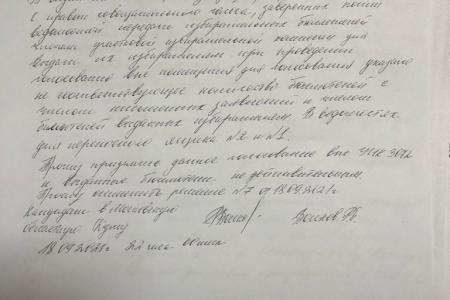 с правом совещательного голоса, заверенных копий
ведомостей передачи избирательных бюллетеней
членам участковой избирательной комиссии для
выдачи их избирателям при проведении
голосования вне помещения для голосования указано
не соответствующее количество бюллетеней с
числом письменных заявлений и числом
бюллетеней выданных избирателям. В ведомостях
для переносного ящика №2 и №1.
Прошу признать данное голосование вне УИК 3072
и выданные бюллетени недействительным.
Прошу отменить решение №7 от 18.09.2021г
Кандидат в Московскую
областную Думу Волков
18.09.2021г 22 часа 00 мин